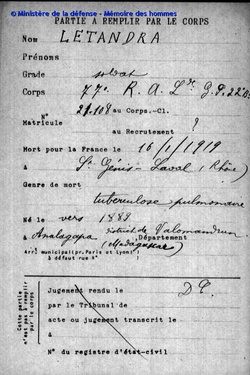 © Ministère de la défense - Mémoire des hommes
PARTIE À REMPLIR PAR LE CORPS
Nom LETANDRA
Prénoms
Grade soldat
Corps 77e R. A. Lde G. P.
N° 21.108 au Corps.-Cl.
Matricule ?
au Recrutement
Mort pour la France le 16/1/1919
à St Génis-Laval (Rhône)
Genre de mort
tuberculose pulmonaire
Né le vers 1889
à district de Département
(Madagascar)
Arrt municipal (pr. Paris et Lyon)
à défaut rue N°
Cette partie n'est pas à remplir par le corps
Jugement rendu le D P.
par le Tribunal de
acte ou jugement transcrit le
à
N° du registre d'état-civil